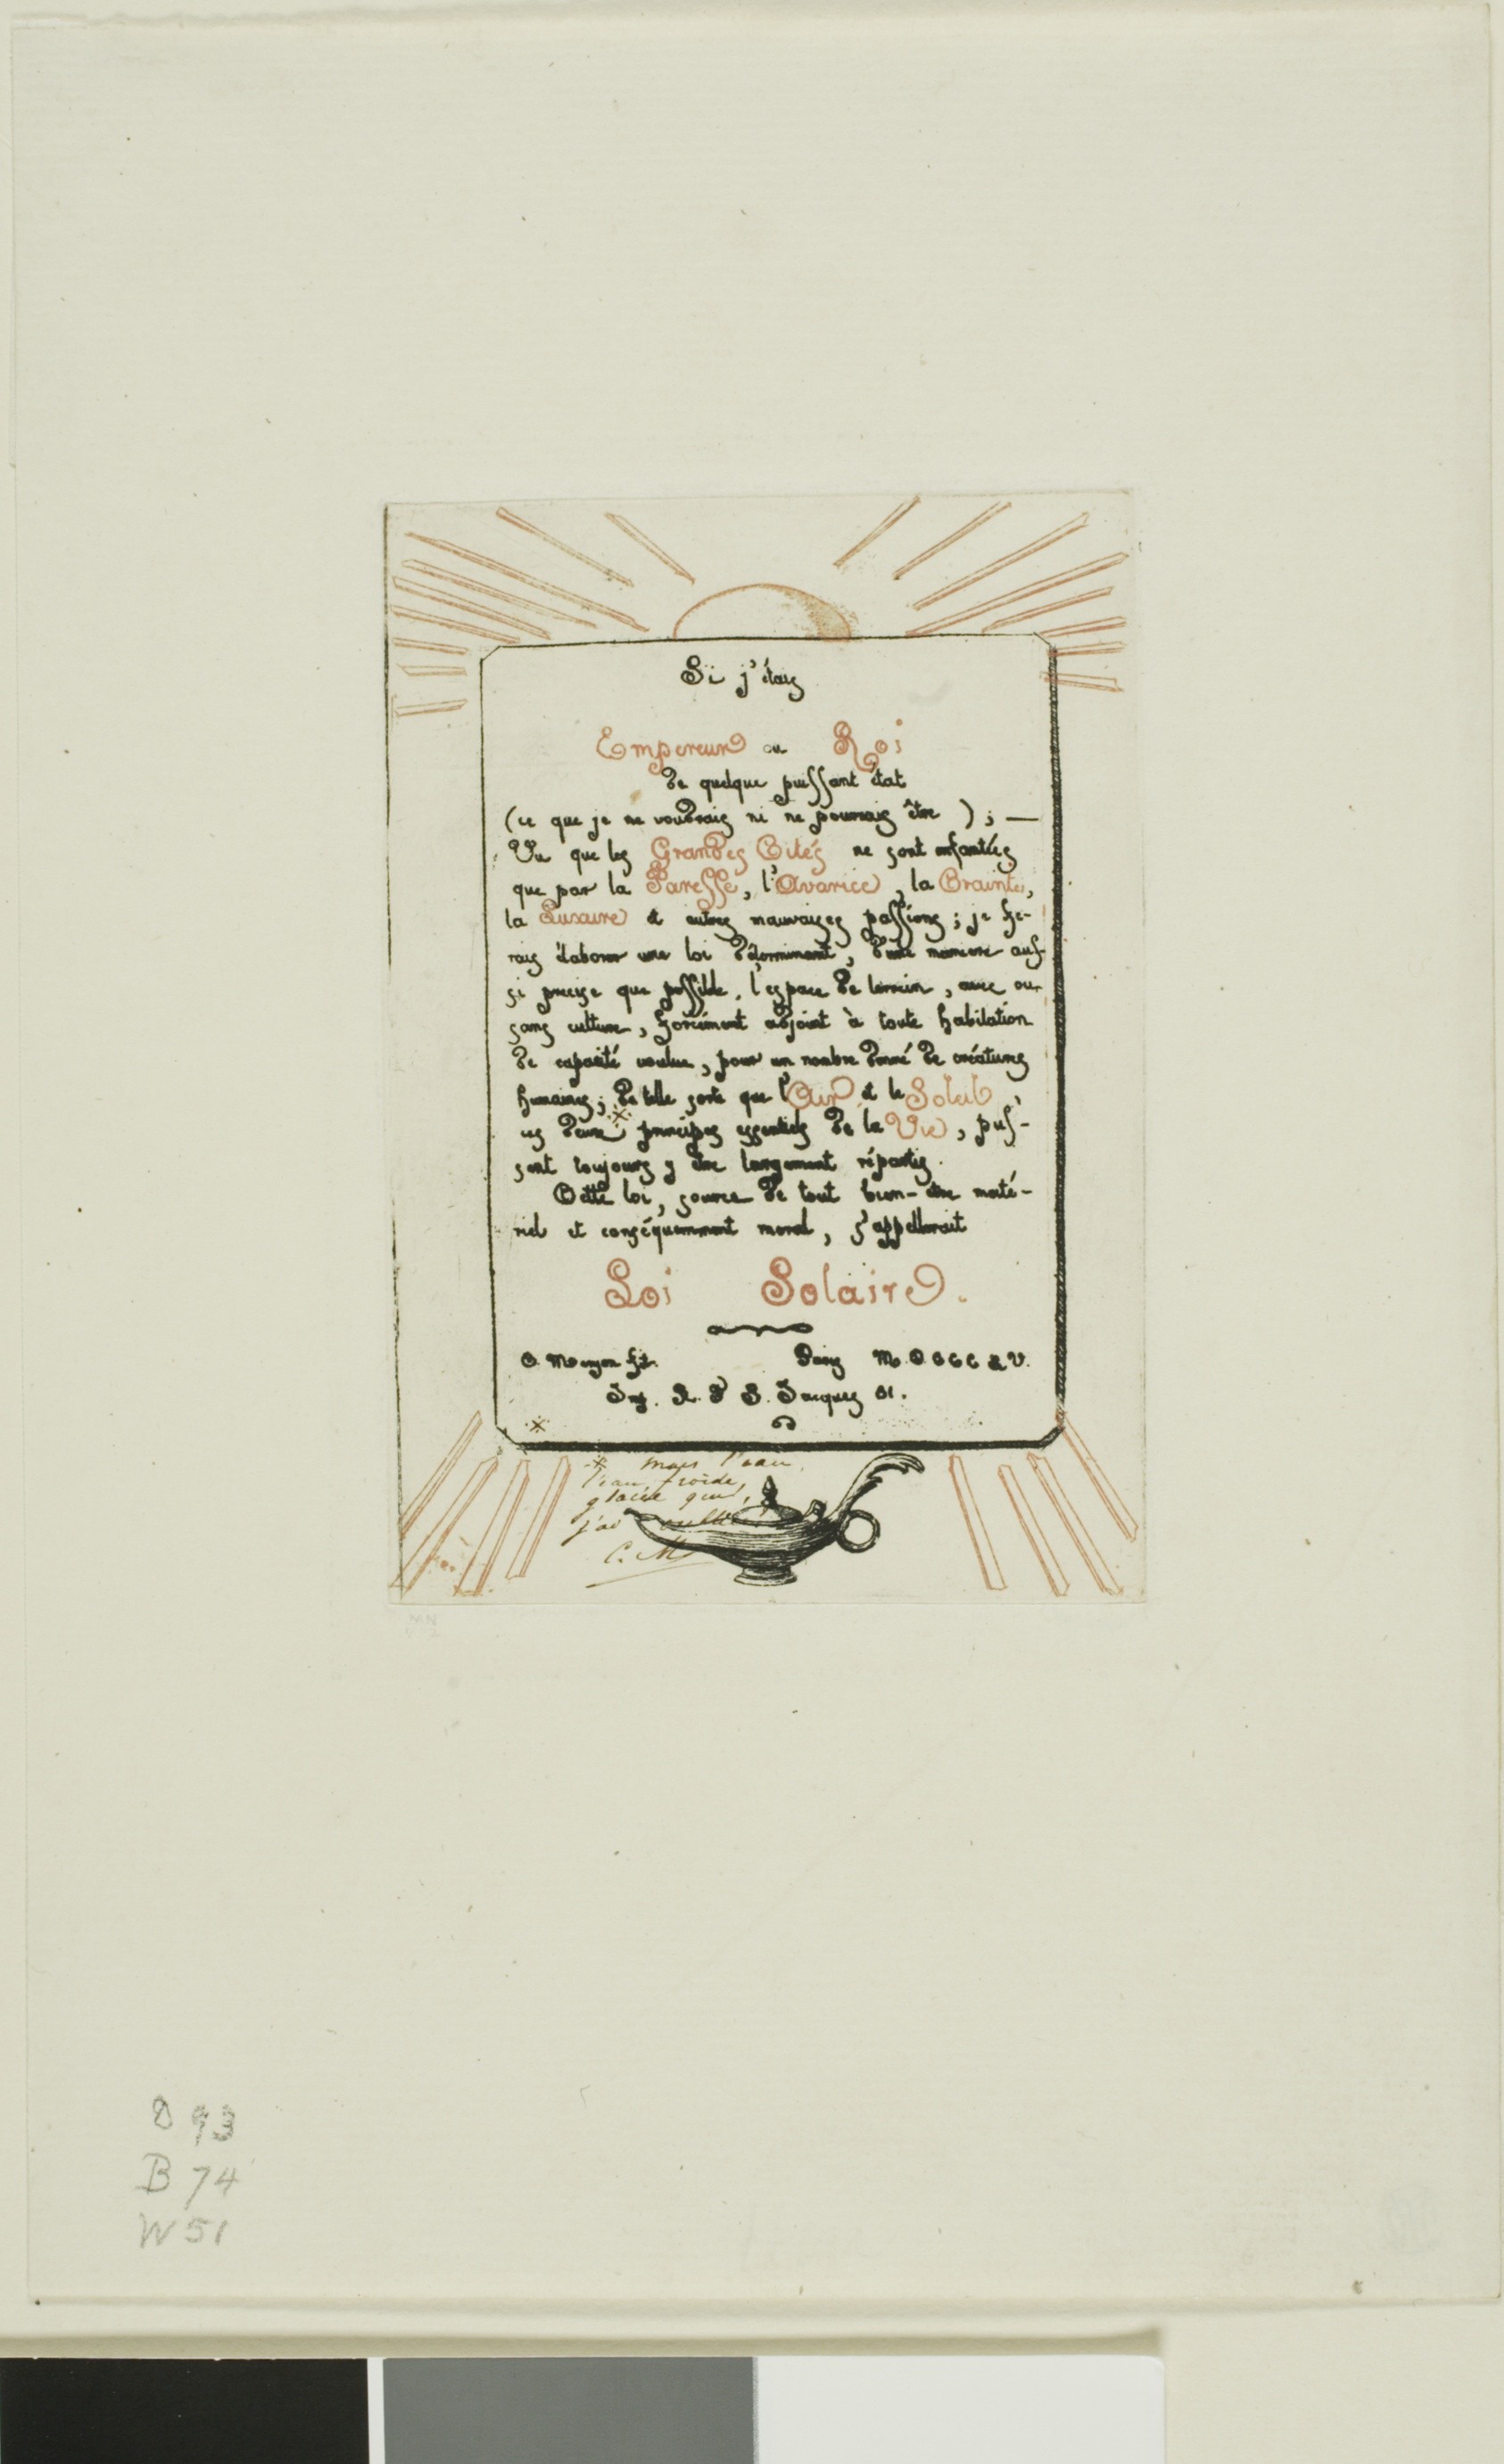 Si j'étais
Empereur ou Roi
de quelque puissant état
(ce que je ne voudrais ni ne pourrais être ) ; —
Vu que les Grandes Cités ne sont enfantées
que par la Paresse, l'Avarice, la Crainte,
la Luxure et autres mauvaises passions ; je fe-
rais élaborer une loi déterminant, d'une manière aus-
si précise que possible, l'espace de terrain, avec ou
sans culture, forcément adjoint à toute habitation
de capacité voulue, pour un nombre donné de créatures
humaines ; de telle sorte que l'Air et le Soleil,
ces deux * principes essentiels de la Vie, puis-
sent toujours y être largement répartis.
Cette loi, source de tout bien-être maté-
riel et conséquemment moral, s'appellerait
Loi Solaire.
C. Meryon ft. Paris M.DCCCLV.
Imp. R. N. S. Jacques
*
* Mais l'eau,
l'eau froide,
glacée
j'ai
C. M
MN
D 93
B 74
W 51